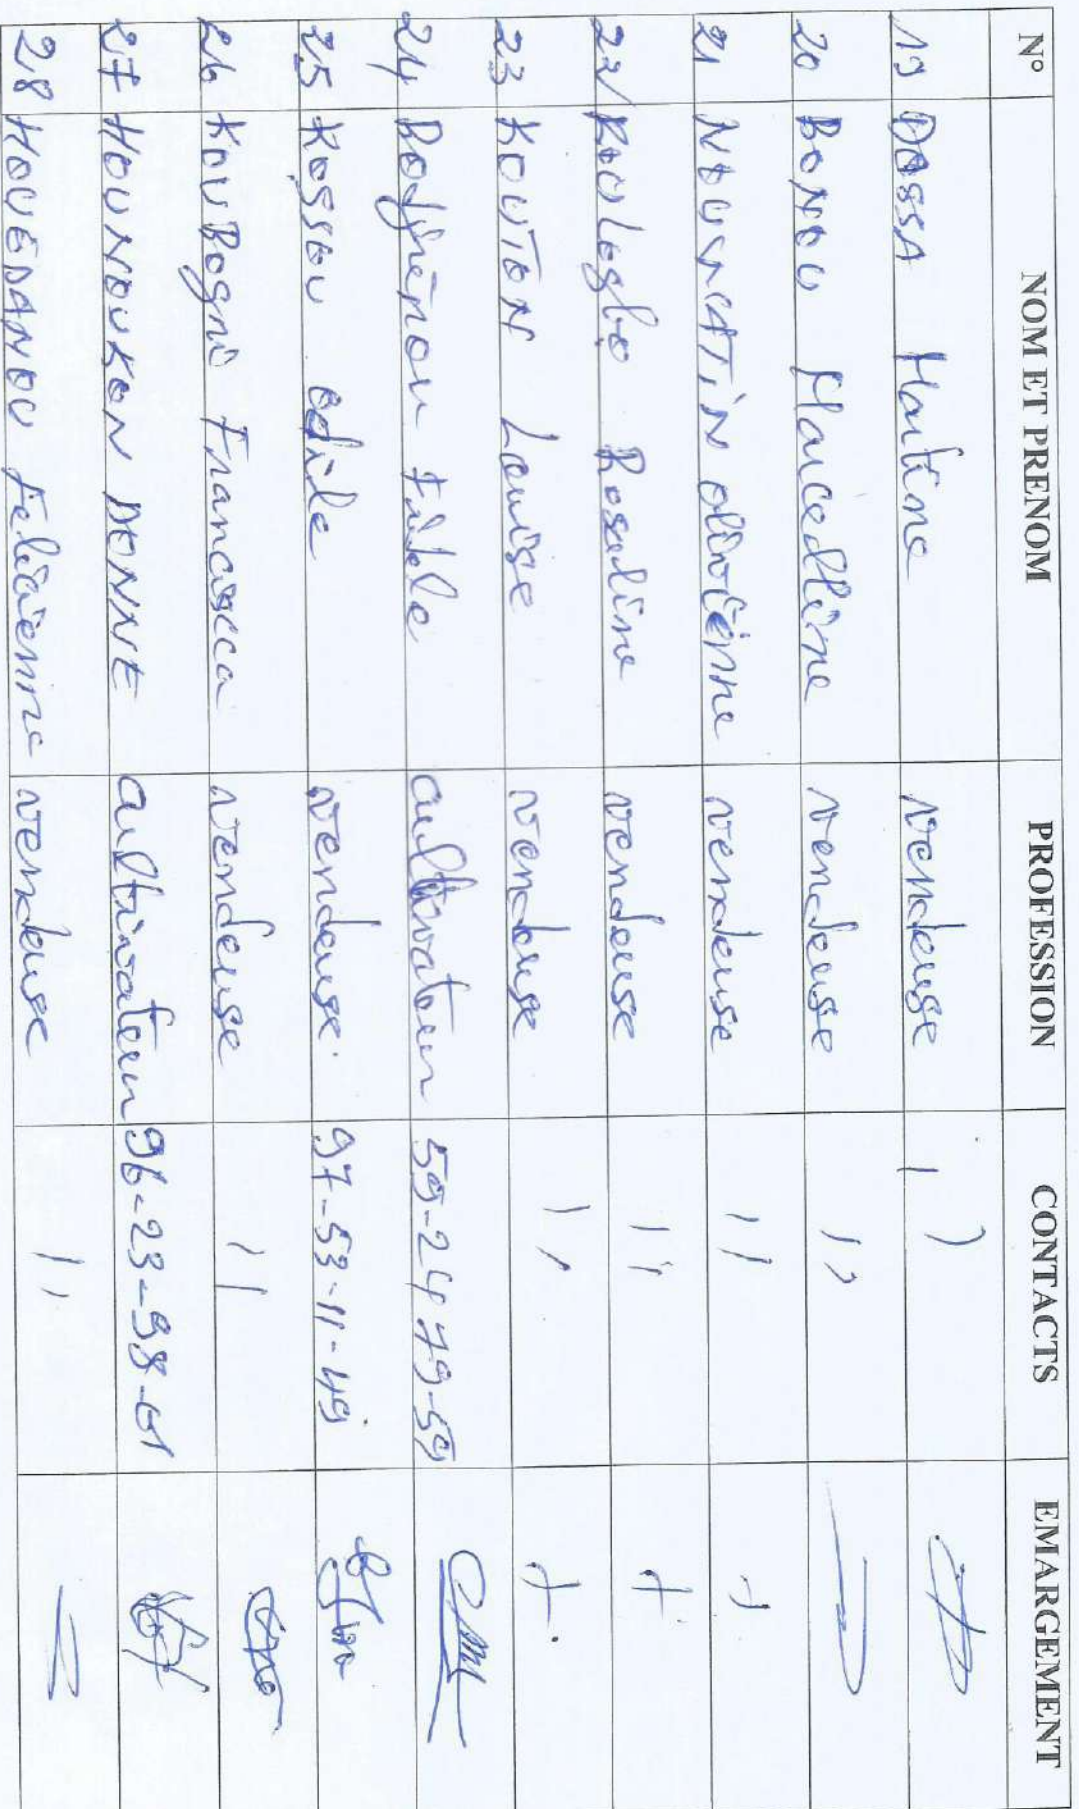 N° NOM ET PRENOM PROFESSION CONTACTS EMARGEMENT
19 DOSSA Martine vendeuse ''
20 BONOU Marcelline vendeuse ''
21 olivienne vendeuse '' +
22 Rosaline vendeuse '' +
23 KOUTON Louise vendeuse '' +
24 Fidele cultivateur 59-24 79-59
25 Kossou odile vendeuse. 97-53-11-49
26 KouBogni Francisca vendeuse ''
27 HOUNOUKON DONNE cultivateur 96-23-98-01
28 HOUEDANOU Felicienne vendeuse ''